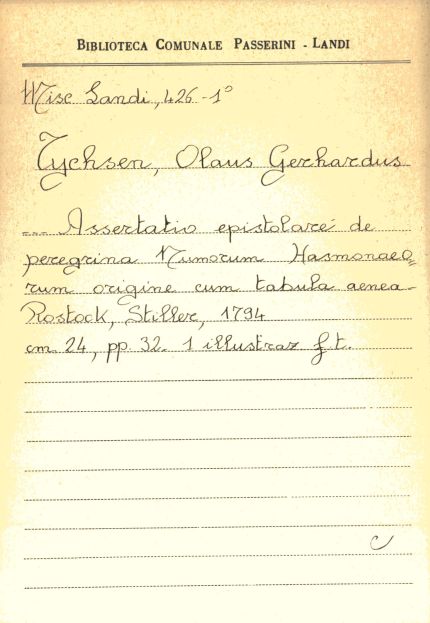 BIBLIOTECA COMUNALE PASSERINI - LANDI
Misc Landi, 426-1°
Tychsen, Olaus Gerhardus
... Assertatio epistolare de
peregrina Numorum Hasmonaeo=
rum origine cum tabula aenea-
Rostock, Stiller, 1794
cm. 24, pp. 32. 1 illustraz f.t.
C